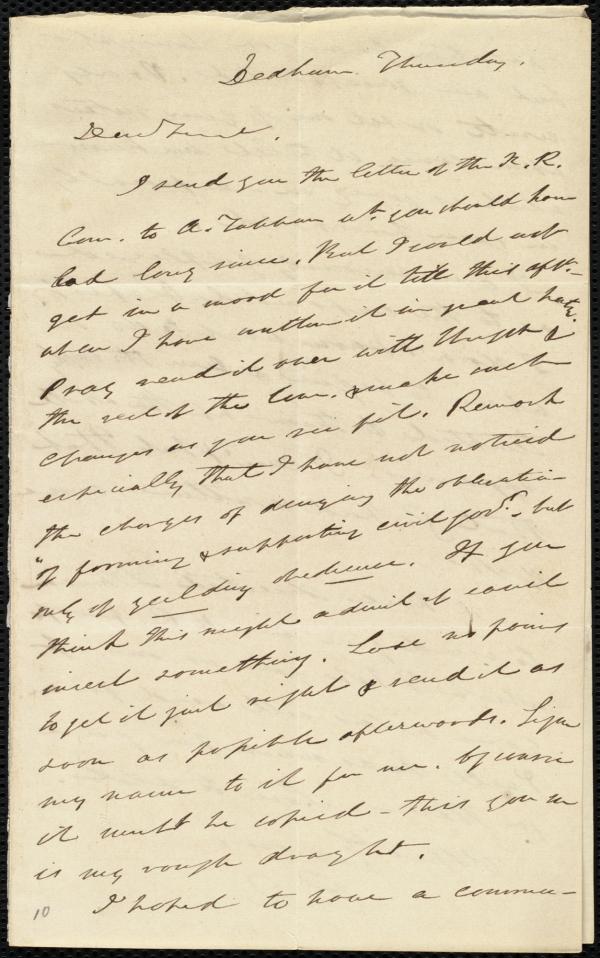 Dedham. Thursday.
Dear Friend.
I send you the letter of the N. R.
Com. to A. Tappan wh. you should have
had long since. But I could not
get in a mood for it till this aft.-
when I have written it in great haste.
Pray read it over with Wright &
the rest of the Com. & make such
changes as you see fit. Remark
especially that I have not noticed
the charges of denying the obligation
"of forming & supporting civil gov't", but
only of yielding obedience. If you
think this might admit of cavil
insert something. Lose no pains
to get it just right & send it as
soon as possible afterwards. Sign
my name to it for me. Of course
it must be copied - this you see
is my rough draught.
I hoped to have a commu-
10